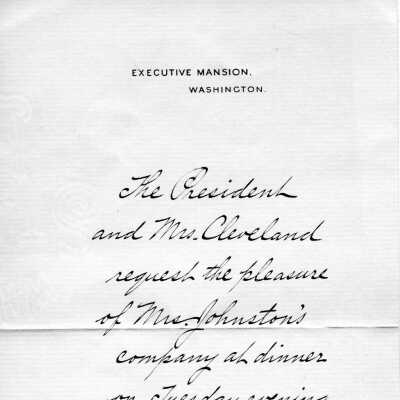 EXECUTIVE MANSION.
WASHINGTON.
The President
and Mrs. Cleveland
request the pleasure
of Mrs. Johnston's
company at dinner
on Tuesday evening